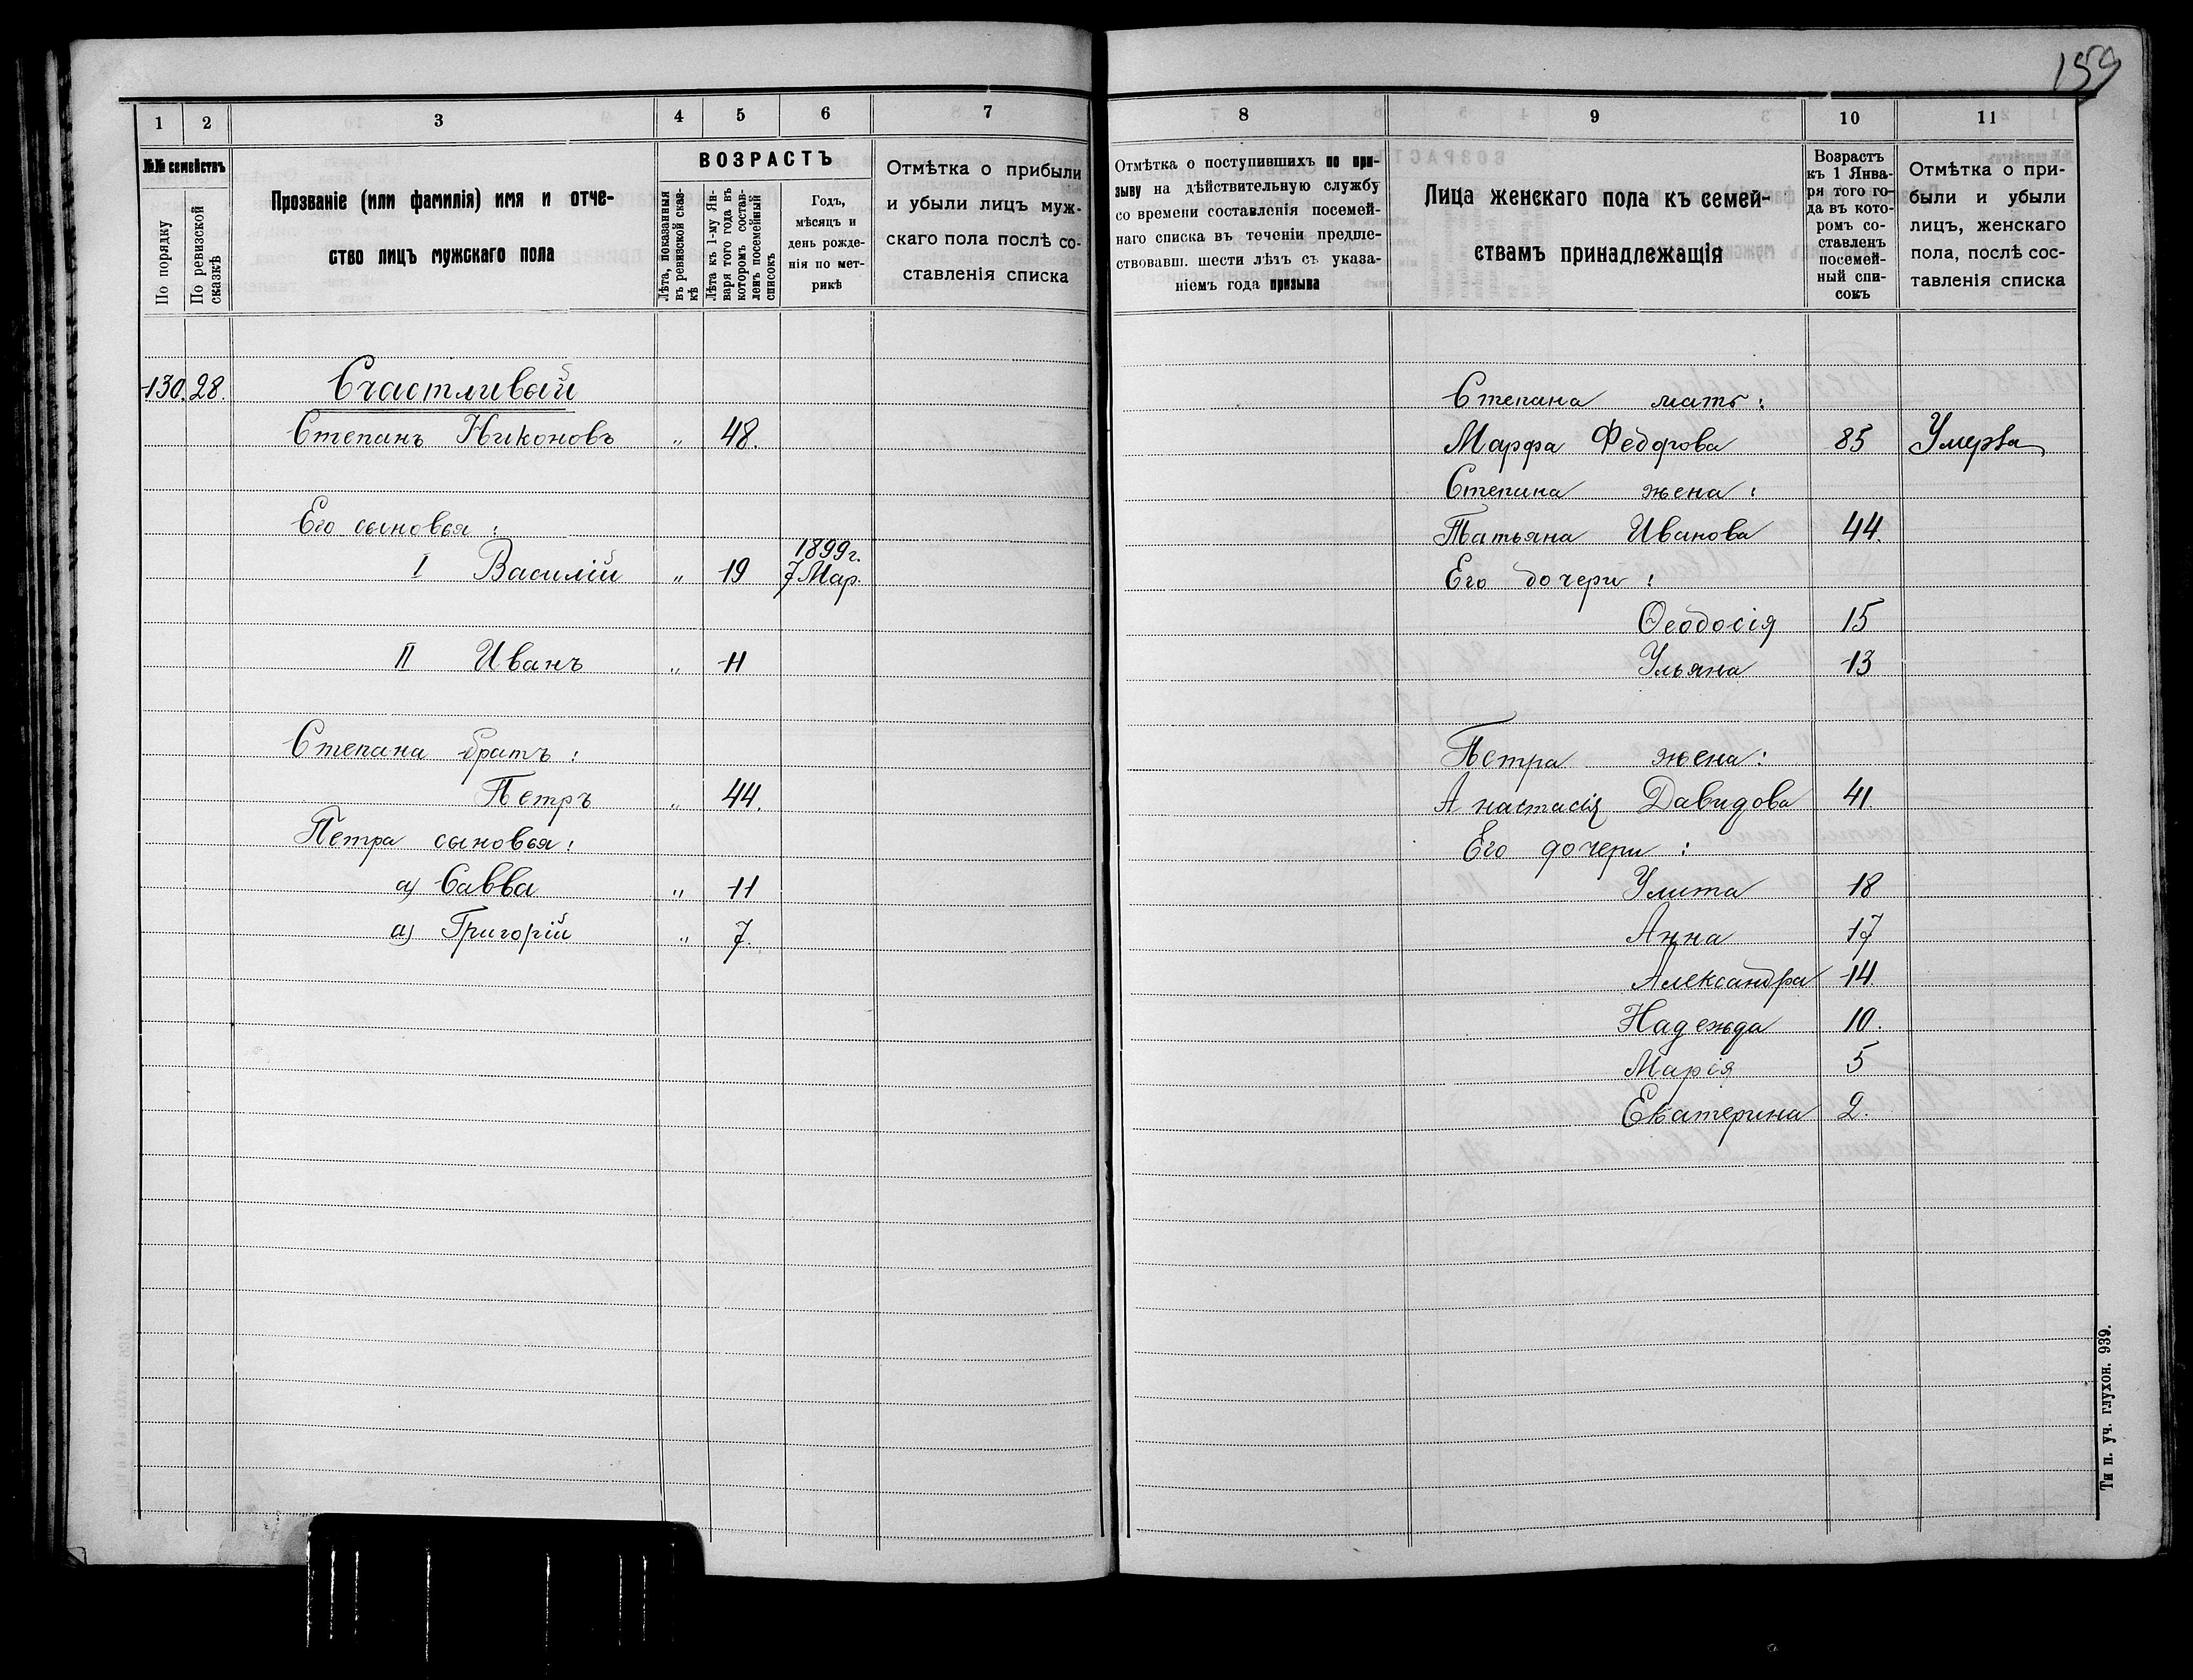 159
1 2 3 4 5 6 7
№№ семействъ
По порядку
По ревизской сказкѣ
Прозваніе (или фамилія) имя и отче-
ство лицъ мужскаго пола
ВОЗРАСТЪ
Лѣта, показанныя
въ ревизской сказ-
кѣ
Лѣта къ 1-му Ян-
варя того года въ
которомъ состав-
ленъ посемейный
списокъ
Годъ,
мѣсяцъ и
день рожде-
нія по мет-
рикѣ
Отмѣтка о прибыли
и убыли лицъ муж-
скаго пола послѣ со-
ставленія списка
130. 28. Счастливый
Степанъ Никоновъ „ 48.
Его сыновья:
1899 г.
I Василій „ 19 7 Мар.
II Иванъ „ 11
Степана братъ:
Петръ „ 44.
Петра сыновья:
а) Савва „ 11
а) Григорій „ 7.
8 9 10 11
Отмѣтка о поступившихъ по при-
зыву на дѣйствительную службу
со времени составленія посемей-
наго списка въ теченіи предше-
ствовавш. шести лѣтъ съ указа-
ніемъ года призыва
Лица женскаго пола къ семей-
ствамъ принадлежащія
Возрастъ
къ 1 Янва-
ря того го-
да въ кото-
ромъ со-
ставленъ
посемей-
ный спи-
сокъ
Отмѣтка о при-
были и убыли
лицъ, женскаго
пола, послѣ сос-
тавленія списка
Степана мать:
Марфа Федорова 85 Умерла
Степана жена:
Татьяна Иванова 44.
Его дочери:
Ѳеодосія 15
Ульяна 13
Петра жена:
Анастасія Давидова 41
Его дочери:
Улита 18
Анна 17
Александра 14.
Надежда 10.
Марія 5
Екатерина 2.
Ти п. уч. глухон. 939.